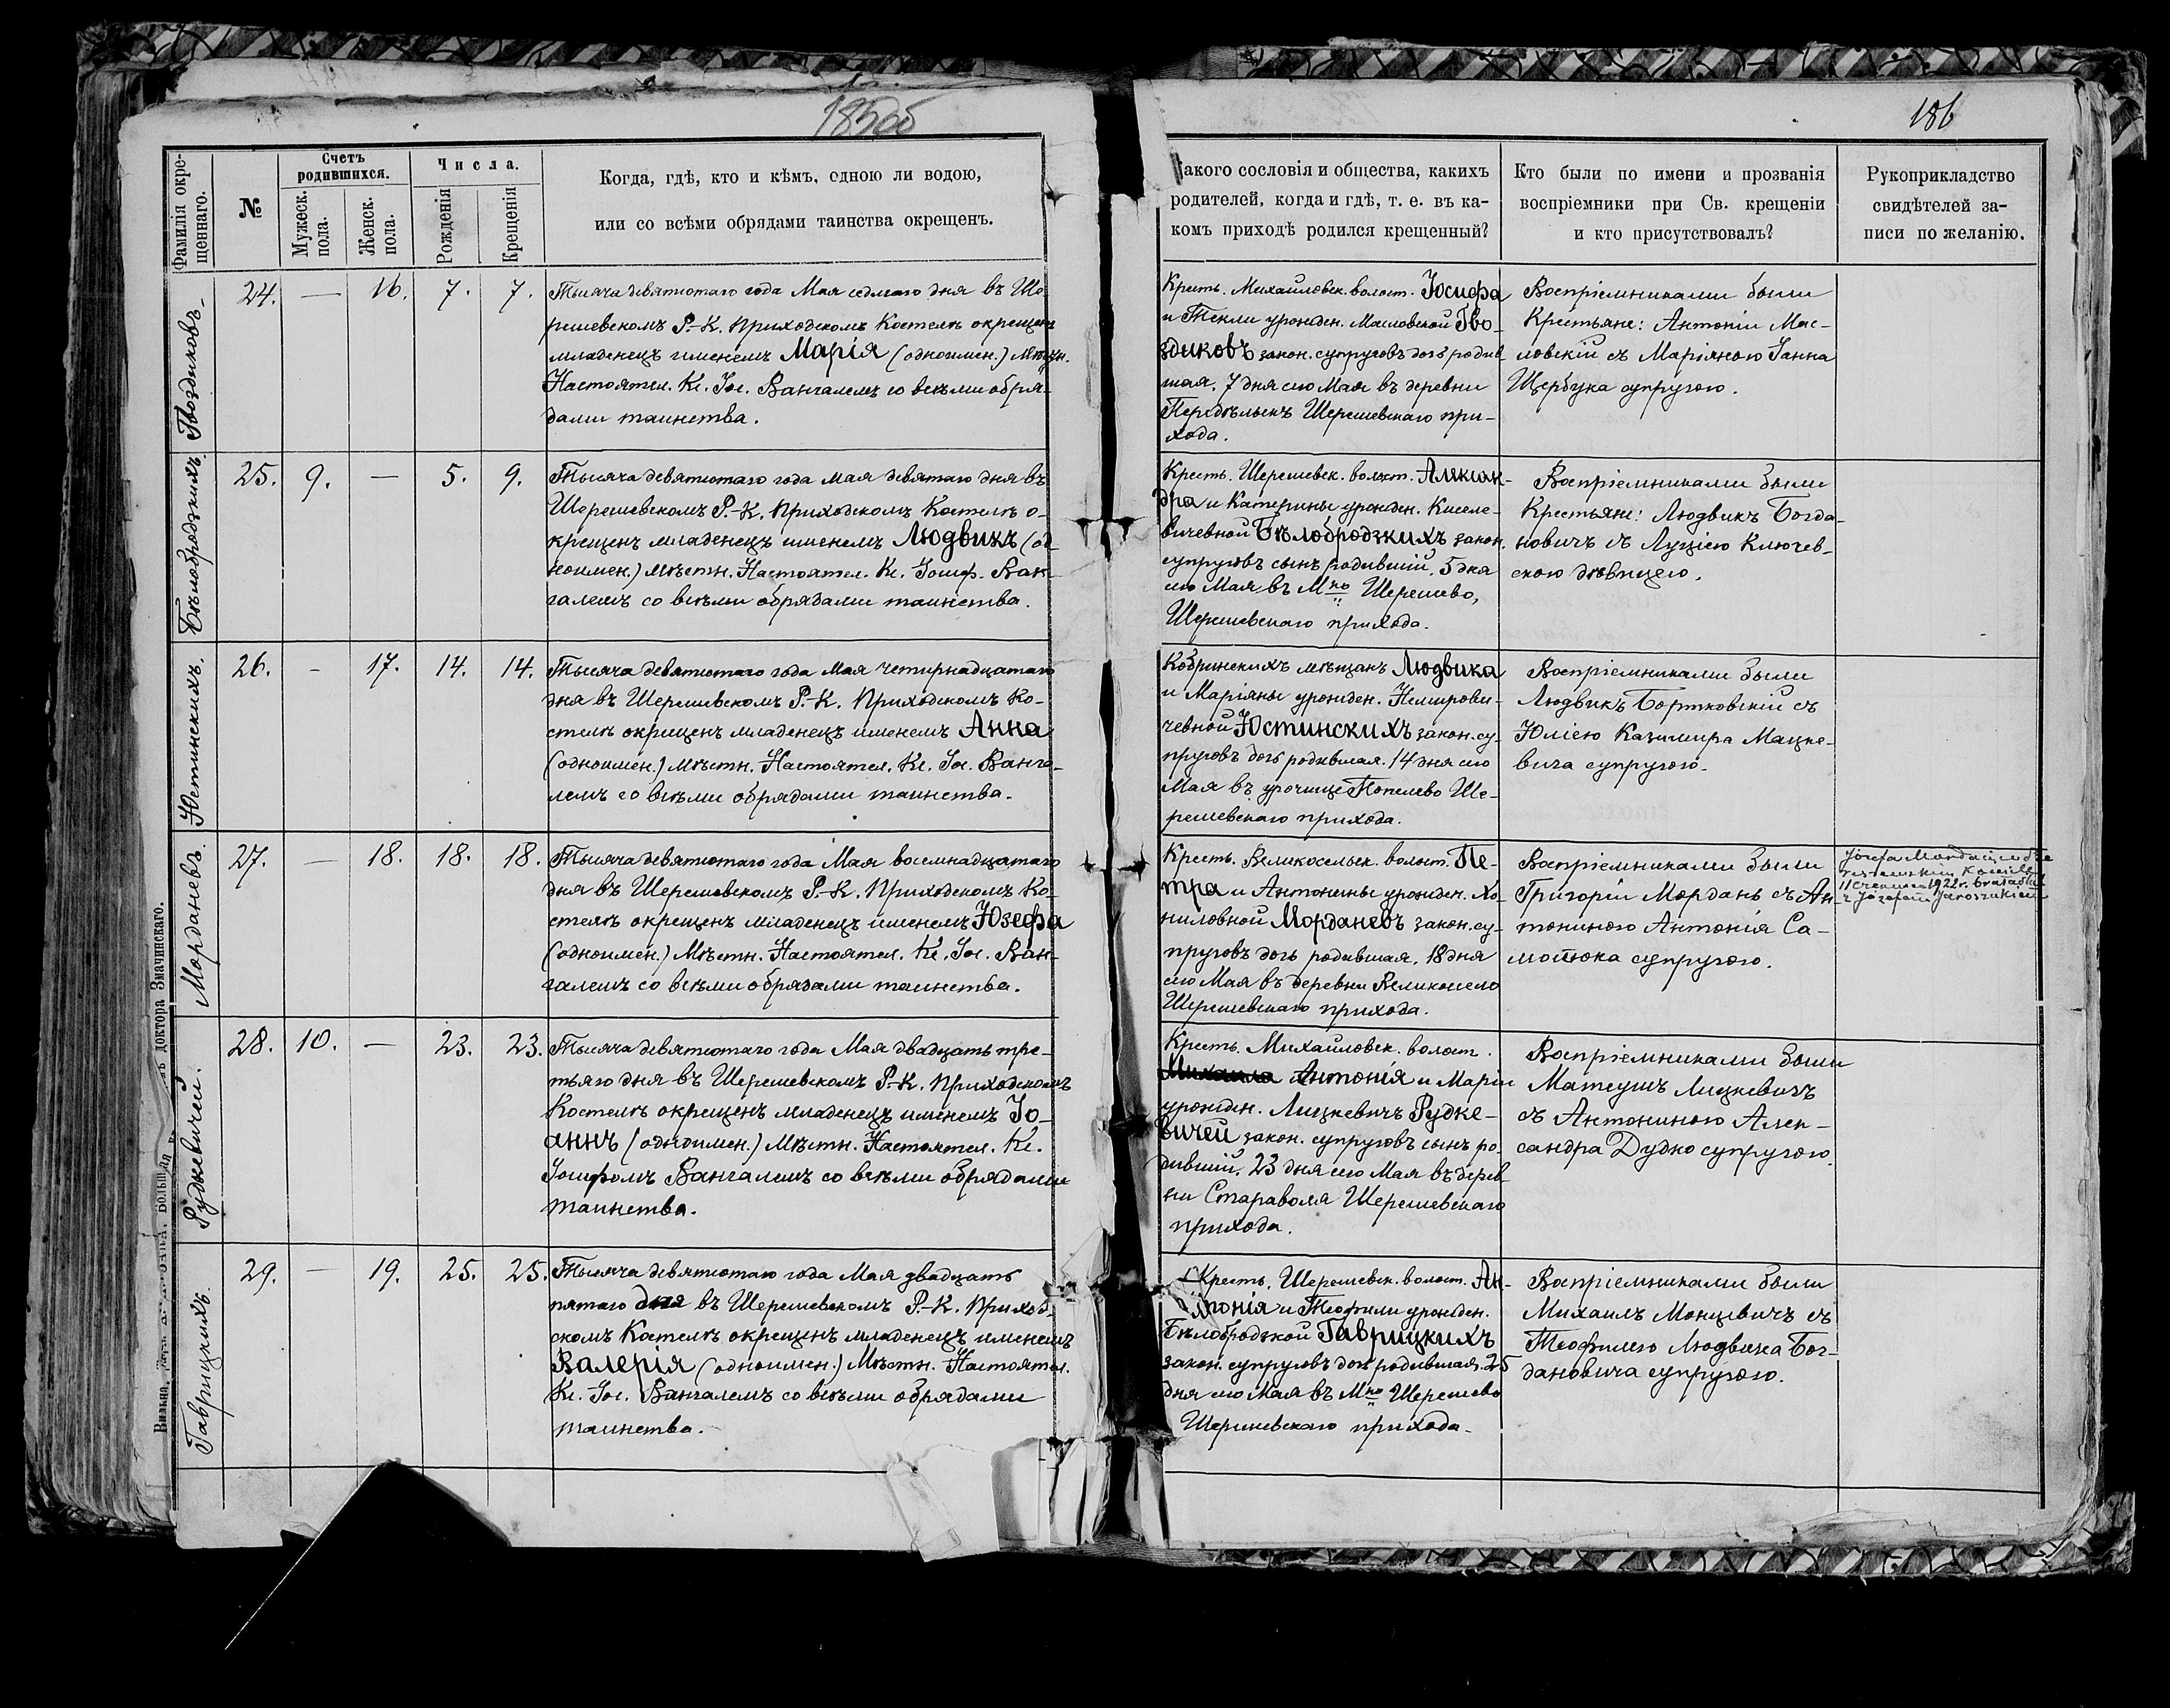 185об
186
Фамилія окре-
щеннаго.
№
Счетъ
родившихся.
Мужеск.
пола.
Женск.
пола.
Числа.
Рожденія
Крещенія
Когда, гдѣ, кто и кѣмъ, одною ли водою,
или со всѣми обрядами таинства окрещенъ.
акого сословія и общества, какихъ
родителей, когда и гдѣ, т. е. въ ка-
комъ приходѣ родился крещенный?
Кто были по имени и прозванія
воспріемники при Св. крещеніи
и кто присутствовалъ?
Рукоприкладство
свидѣтелей за-
писи по желанію.
Гвоздиковъ
24. — 16. 7. 7.
Тысяча девятютаго года Мая седмаго дня въ Ше-
решевскомъ Р.-К. Приходскомъ Костелѣ окрещенъ
младенецъ именемъ Марія (одноимен.) Мѣстн.
Настоятел. Кс. Іос. Вангалемъ со всѣми обря-
дами таинства.
Кресть. Михайловск. волост. Іосифа
и Текли урожден. Масловской Гво-
здиковъ закон. супруговъ дочь родив-
шая. 7 дня сего Мая въ деревни
Шерешевскаго при-
хода.
Воспріемниками были
Крестьяне: Антоній Мас-
ловскій съ Маріяною Ганна
Щербука супругою.
Бѣлобродзкихъ
25. 9. — 5. 9.
Тысяча девятютаго года Мая девятаго дня въ
Шерешевскомъ Р.-К. Приходскомъ Костелѣ о-
крещенъ младенецъ именемъ Людвикъ (од-
ноимен.) Мѣстн. Настоятел. Кс. Іосиф. Ван-
галемъ со всѣми обрядами таинства.
Кресть. Шерешевск. волост. Алексан-
дра и Катерины урожден. Киселе-
вичевной Бѣлобродзкихъ закон.
супруговъ сынъ родившій. 5 дня
сего Мая въ М-ко Шерешево,
Шерешевскаго прихода.
Воспріемниками были
Крестьяне: Людвикъ Богда-
новичъ съ Луціею Ключев-
скою дѣвицею.
Юстинскихъ.
26. - 17. 14. 14.
Тысяча девятютаго года Мая четирнадцатаго
дня въ Шерешевскомъ Р.-К. Приходскомъ Ко-
стелѣ окрещенъ младенецъ именемъ Анна
(одноимен.) Мѣстн. Настоятел. Кс. Іос. Ванга-
лемъ со всѣми обрядами таинства.
Кобринскихъ мѣщанъ Людвика
и Маріяны урожден. Немирови-
чевной Юстинскихъ закон. су-
пруговъ дочь родившая. 14 дня сего
Мая въ урочище Попелево Ше-
решевскаго прихода.
Воспріемниками были
Людвикъ Бортковскій съ
Юліею Казимира Мацке-
вича супругою.
Морданевъ
27. — 18. 18. 18.
Тысяча девятютаго года Мая восемнадцатаго
дня въ Шерешевскомъ Р.-К. Приходскомъ Ко-
стелѣ окрещенъ младенецъ именемъ Юзефа
(одноимен.) Мѣстн. Настоятел. Кс. Іос. Ван-
галемъ со всѣми обрядами таинства.
Кресть. Великосельск. волост. Пе-
тра и Антонины урожден. Хо-
ниловной Морданевъ закон. су-
пруговъ дочь родившая. 18 дня
сего Мая въ деревни Великосело
Шерешевскаго прихода.
Воспріемниками были
Григорій Морданъ съ Ан-
тониною Антонія Са-
мотюка супругою.
Józefa
11 Czerwca 1922 r.
z Józefem Jaroszukiem
Рудкевичей.
28. 10. — 23. 23.
Тысяча девятютаго года Мая двадцать тре-
тьяго дня въ Шерешевскомъ Р-К. Приходскомъ
Костелѣ окрещенъ младенецъ именемъ Іо-
аннъ (одноимен.) Мѣстн. Настоятел. Кс.
Іосифомъ Вангалемъ со всѣми обрядами
таинства.
Кресть. Михайловск. волост.
Михаила Антонія и Маріи
урожден. Лицкевичъ Рудке-
вичей закон. супруговъ сынъ ро-
дившій. 23 дня сего Мая въ дерев-
ни Староволя Шерешевскаго
прихода.
Воспріемниками были
Матеушъ Лицкевичъ
съ Антониною Алек-
сандра Дудко супругою.
Гаврицкихъ.
29. — 19. 25. 25.
Тысяча девятютаго года Мая двадцать
пятаго дня въ Шерешевскомъ Р.-К. Приход-
скомъ Костелѣ окрещенъ младенецъ именемъ
Валерія (одноимен.) Мѣстн. Настоятел.
Кс. Іос. Вангалемъ со всѣми обрядами
таинства.
Кресть. Шерешевск. волост. Ан-
тонія и Теофили урожден.
Бѣлобродзкой Гаврицкихъ
закон. супруговъ дочь родившая. 25
дня сего Мая въ М-ко Шерешево
Шерешевскаго прихода.
Воспріемниками были
Михаилъ Монцевичъ съ
Теофилею Людвика Бог-
дановича супругою.
доктора Змачинскаго.